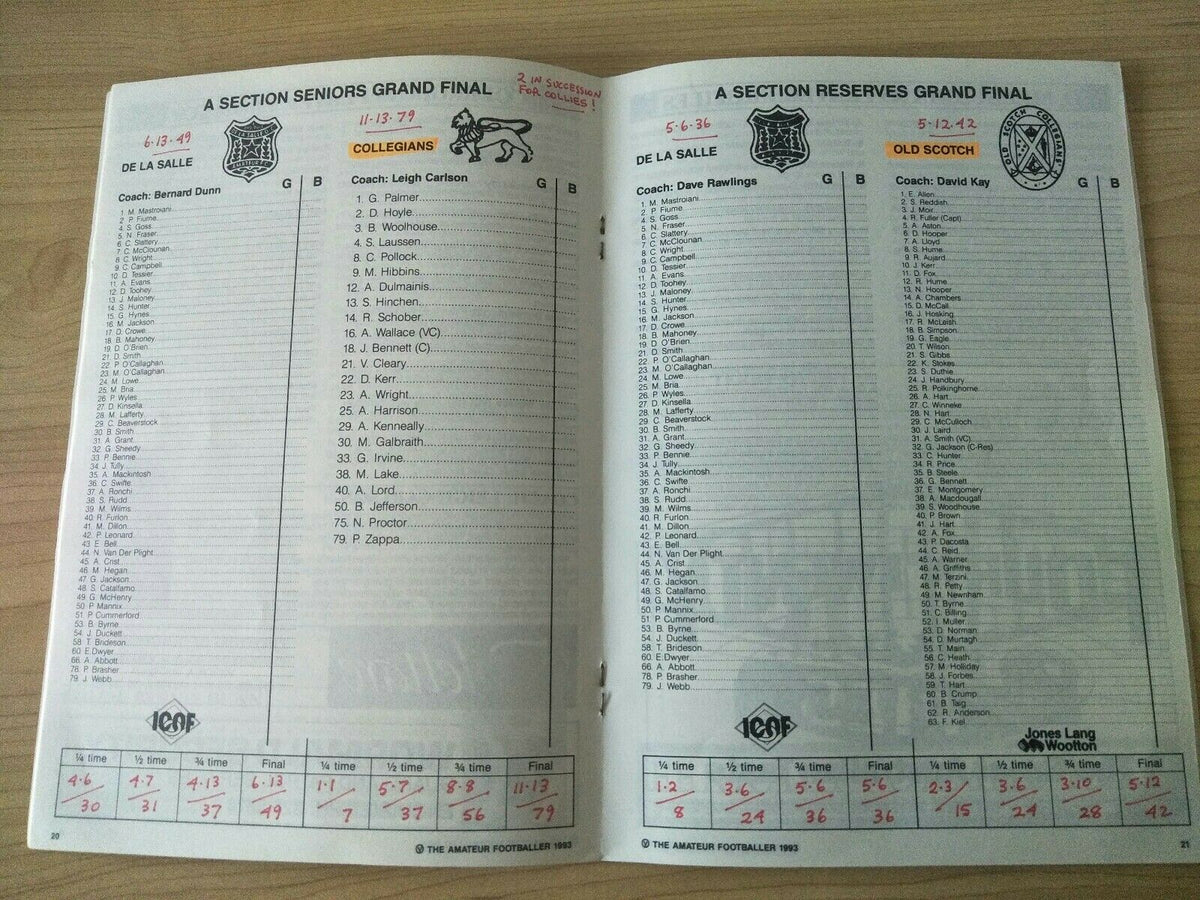 A SECTION SENIORS GRAND FINAL
2 IN SUCCESSION
FOR COLLIES!
6.13.49
DE LA SALLE
Coach: Bernard Dunn
G B
1 M. Mastroiani
2 P. Fiume
4 S. Goss
5 N. Fraser
6 C. Slattery
7 C. McClounan
8 C. Wright
9 C. Campbell
10 D. Tessier
11 A. Evans
12 D. Toohey
13 J. Maloney
14 S. Hunter
15 G. Hynes
16 M. Jackson
17 D. Crowe
18 B. Mahoney
19 D. O'Brien
21 D. Smith
22 P. O'Callaghan
23 M. O'Callaghan
24 M. Lowe
25 M. Bria
26 P. Wyles
27 D. Kinsella
28 M. Lafferty
29 C. Beaverstock
30 B. Smith
31 A. Grant
32 G. Sheedy
33 P. Bennie
34 J. Tully
35 A. Mackintosh
36 C. Swifte
37 A. Ronchi
38 S. Rudd
39 M. Wilms
40 R. Furlon
41 M. Dillon
42 P. Leonard
43 E. Bell
44 N. Van Der Plight
45 A. Crist
46 M. Hegan
47 G. Jackson
48 S. Catalfamo
49 G. McHenry
50 P. Mannix
51 P. Cummerford
53 B. Byrne
54 J. Duckett
58 T. Brideson
60 E. Dwyer
66 A. Abbott
78 P. Brasher
79 J. Webb
11.13.79
COLLEGIANS
Coach: Leigh Carlson
G B
1 G. Palmer
2 D. Hoyle
3 B. Woolhouse
4 S. Laussen
8 C. Pollock
9 M. Hibbins
12 A. Dulmainis
13 S. Hinchen
14 R. Schober
16 A. Wallace (VC)
18 J. Bennett (C)
21 V. Cleary
22 D. Kerr
23 A. Wright
25 A. Harrison
29 A. Kenneally
30 M. Galbraith
33 G. Irvine
38 M. Lake
40 A. Lord
50 B. Jefferson
75 N. Proctor
79 P. Zappa
¼ time ½ time ¾ time Final ¼ time ½ time ¾ time Final
4.6 4.7 4.13 6.13 1.1 5.7 8.8 11.13
30 31 37 49 7 37 56 79
20
THE AMATEUR FOOTBALLER 1993
A SECTION RESERVES GRAND FINAL
5.6.36
DE LA SALLE
Coach: Dave Rawlings
G B
1 M. Mastroiani
2 P. Fiume
4 S. Goss
5 N. Fraser
6 C. Slattery
7 C. McClounan
8 C. Wright
9 C. Campbell
10 D. Tessier
11 A. Evans
12 D. Toohey
13 J. Maloney
14 S. Hunter
15 G. Hynes
16 M. Jackson
17 D. Crowe
18 B. Mahoney
19 D. O'Brien
21 D. Smith
22 P. O'Callaghan
23 M. O'Callaghan
24 M. Lowe
25 M. Bria
26 P. Wyles
27 D. Kinsella
28 M. Lafferty
29 C. Beaverstock
30 B. Smith
31 A. Grant
32 G. Sheedy
33 P. Bennie
34 J. Tully
35 A. Mackintosh
36 C. Swifte
37 A. Ronchi
38 S. Rudd
39 M. Wilms
40 R. Furlon
41 M. Dillon
42 P. Leonard
43 E. Bell
44 N. Van Der Plight
45 A. Crist
46 M. Hegan
47 G. Jackson
48 S. Catalfamo
49 G. McHenry
50 P. Mannix
51 P. Cummerford
53 B. Byrne
54 J. Duckett
58 T. Brideson
60 E. Dwyer
66 A. Abbott
78 P. Brasher
79 J. Webb
5.12.42
OLD SCOTCH
OLD SCOTCH COLLEGIANS'
Coach: David Kay
G B
1 E. Allen
2 S. Reddish
3 J. Moir
4 R. Fuller (Capt)
5 A. Aston
6 D. Hooper
7 A. Lloyd
8 S. Hume
9 R. Aujard
10 J. Kerr
11 D. Fox
12 R. Hume
13 N. Hooper
14 A. Chambers
15 D. McCall
16 J. Hosking
17 R. McLeish
18 B. Simpson
19 G. Eagle
20 T. Wilson
21 S. Gibbs
22 K. Stokes
23 S. Duthie
24 J. Handbury
25 R. Polkinghorne
26 A. Hart
27 C. Winneke
28 N. Hart
29 C. McCulloch
30 J. Laird
31 A. Smith (VC)
32 G. Jackson (C-Res)
33 C. Hunter
34 R. Price
35 B. Steele
36 G. Bennett
37 E. Montgomery
38 A. Macdougall
39 S. Woodhouse
40 P. Brown
41 J. Hart
42 A. Fox
43 P. Dacosta
44 C. Reid
45 A. Warner
46 A. Griffiths
47 M. Terzini
48 R. Petty
49 M. Newnham
50 T. Byrne
51 C. Billing
52 I. Muller
53 D. Norman
54 D. Murtagh
55 T. Main
56 C. Heath
57 M. Holliday
58 J. Forbes
59 T. Hart
60 B. Crump
61 B. Taig
62 R. Anderson
63 F. Kiel
Jones Lang
Wootton
¼ time ½ time ¾ time Final ¼ time ½ time ¾ time Final
1.2 3.6 5.6 5.6 2.3 3.6 3.10 5.12
8 24 36 36 15 24 28 42
THE AMATEUR FOOTBALLER 1993
21